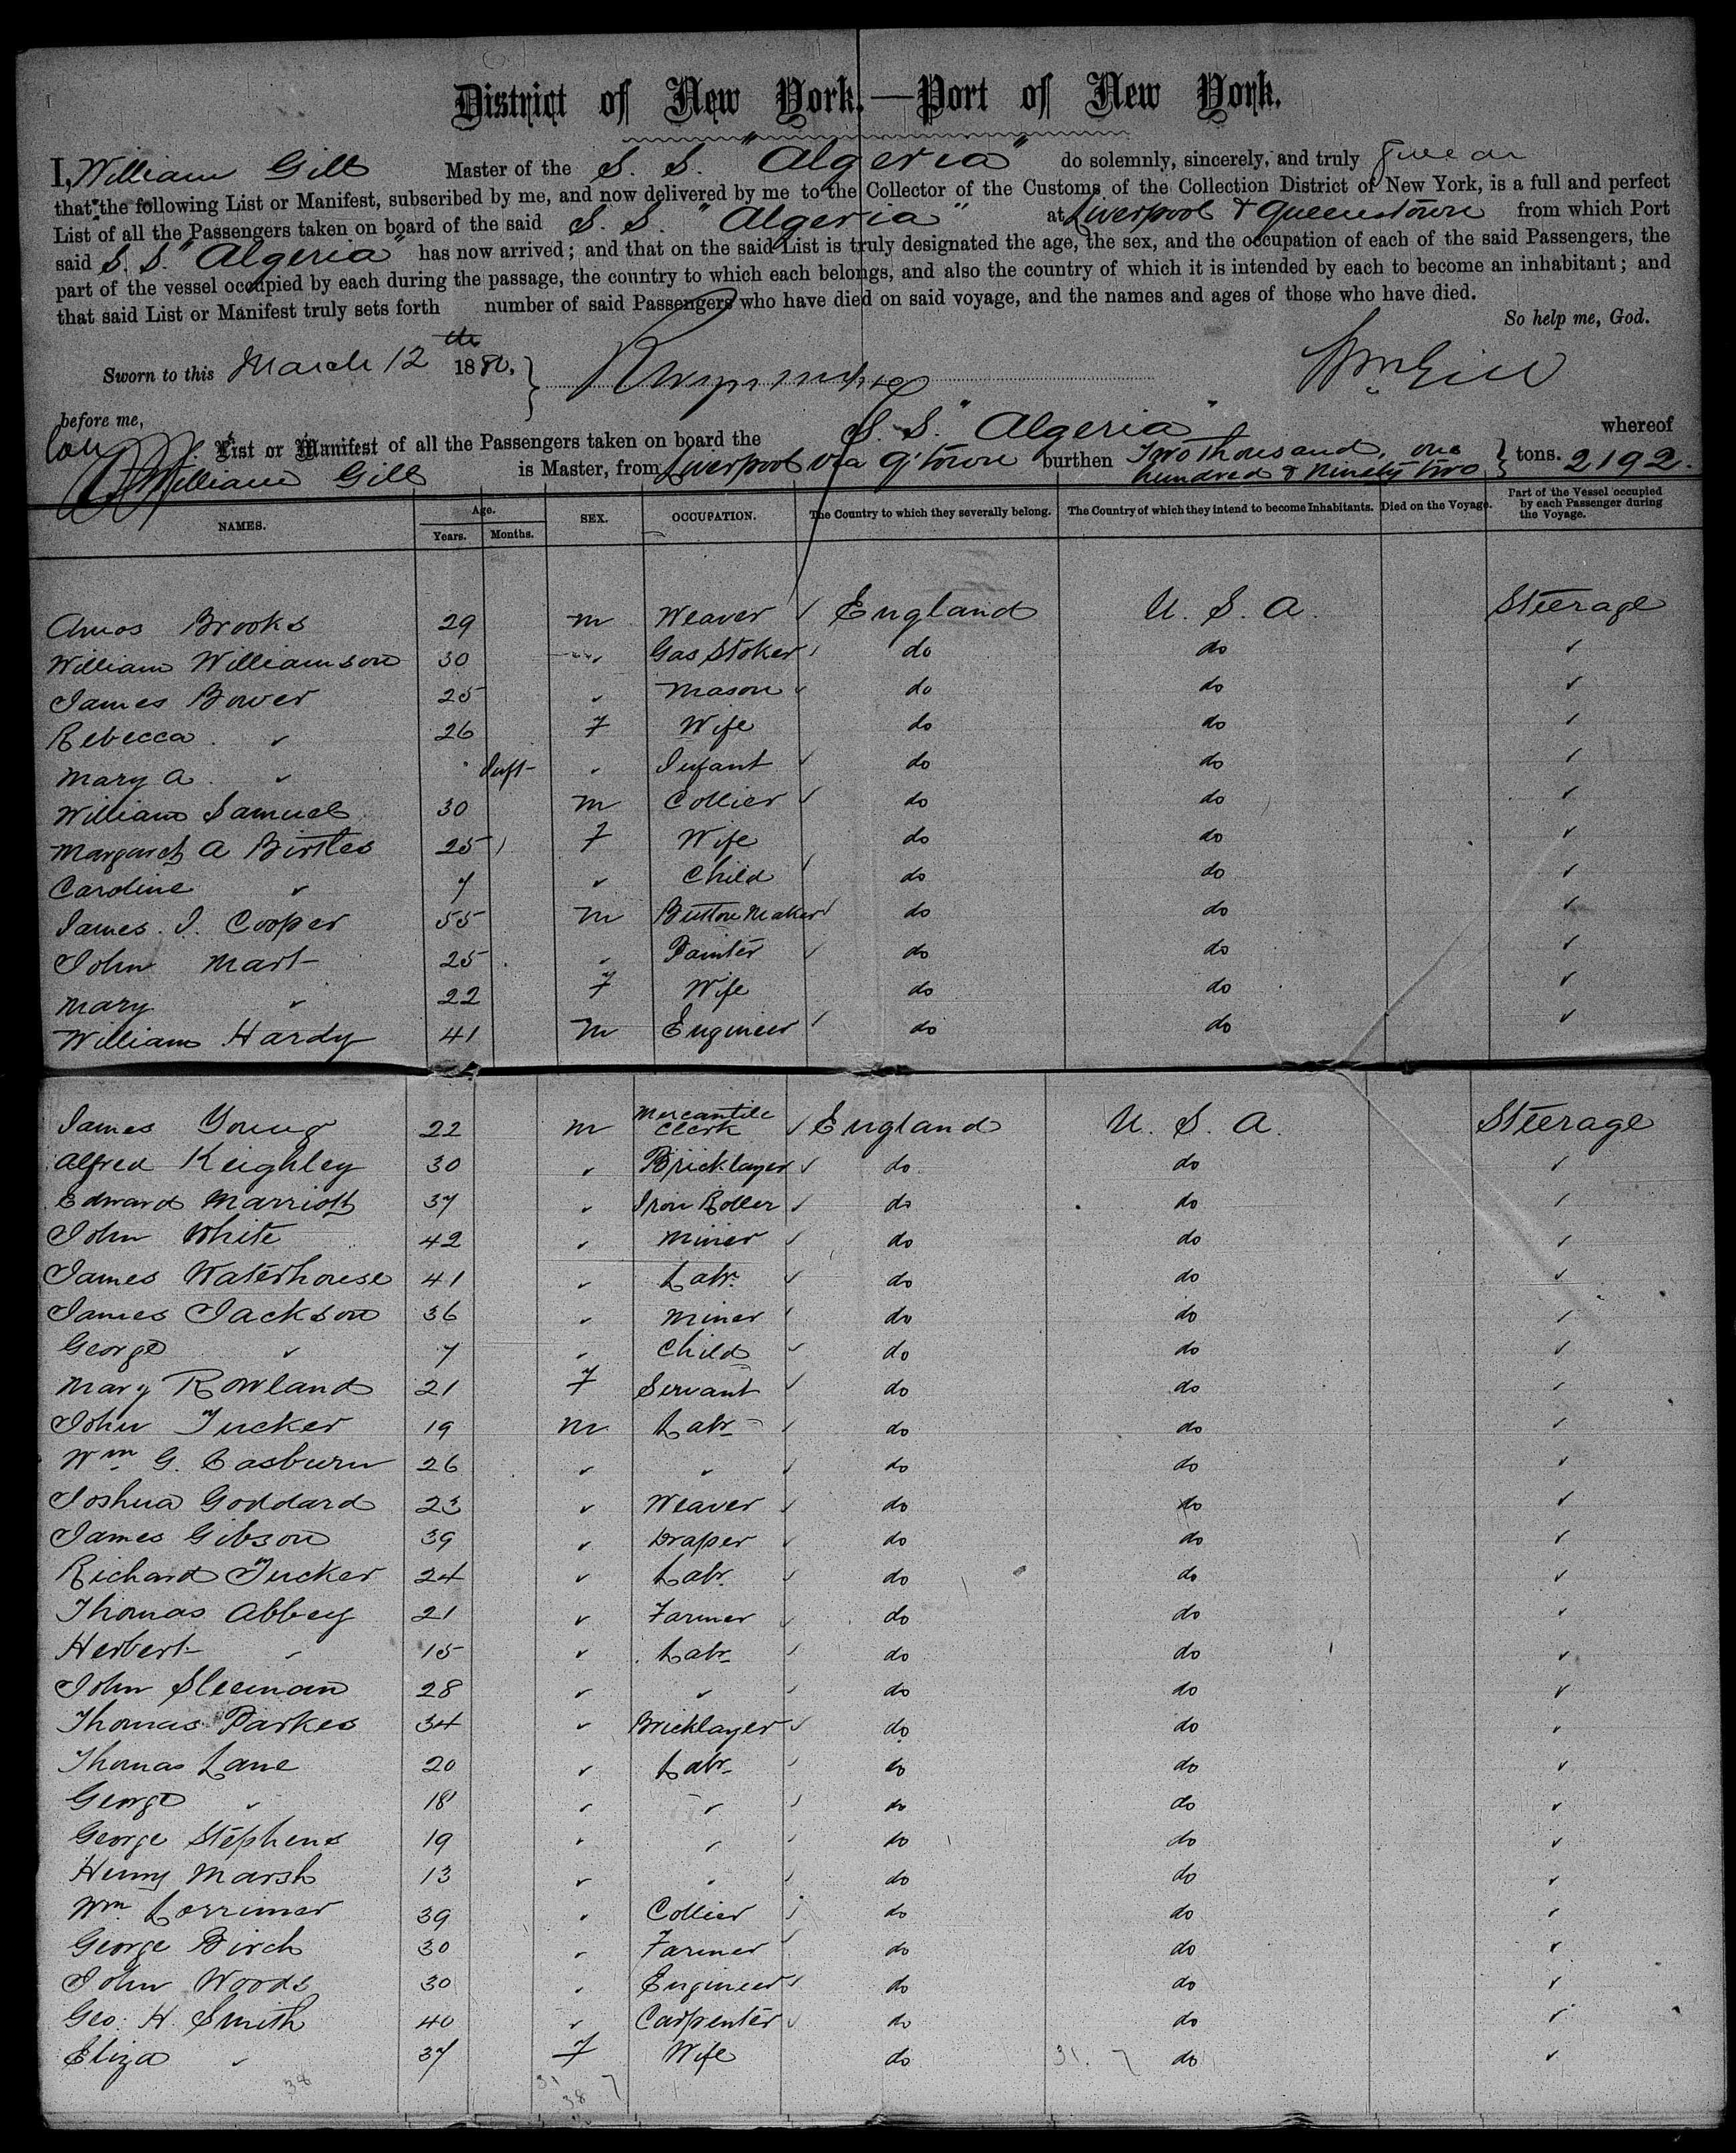 District of New York.—Port of New York.
I, William Gill Master of the S. S. "Algeria" do solemnly, sincerely, and truly swear
that the following List or Manifest, subscribed by me, and now delivered by me to the Collector of the Customs of the Collection District of New York, is a full and perfect
List of all the Passengers taken on board of the said S. S. "Algeria" at Liverpool & Queenstown from which Port
said S. S. "Algeria" has now arrived; and that on the said List is truly designated the age, the sex, and the occupation of each of the said Passengers, the
part of the vessel occupied by each during the passage, the country to which each belongs, and also the country of which it is intended by each to become an inhabitant; and
that said List or Manifest truly sets forth number of said Passengers who have died on said voyage, and the names and ages of those who have died.
So help me, God.
Sworn to this March 12th 1880, Wm Gill
before me,
List or Manifest of all the Passengers taken on board the S. S. "Algeria" whereof
William Gill is Master, from Liverpool via Q'town burthen Two Thousand, one hundred & Ninety two tons. 2192.
NAMES. Age. Years. Months. SEX. OCCUPATION. The Country to which they severally belong. The Country of which they intend to become Inhabitants. Died on the Voyage. Part of the Vessel occupied by each Passenger during the Voyage.
Amos Brooks 29 M Weaver ✓ England U. S. A. Steerage
William Williamson 30 ✓ Gas Stoker ✓ do do ✓
James Bower 25 ✓ Mason ✓ do do ✓
Rebecca ✓ 26 F Wife do do ✓
Mary A ✓ Inft ✓ Infant ✓ do do ✓
William Samuel 30 M Collier ✓ do do ✓
Margaret A Birtles 25 F Wife do do ✓
Caroline ✓ 7 ✓ Child ✓ do do ✓
James. I. Cooper 55 M Button Maker ✓ do do ✓
John Mart 25 ✓ Painter ✓ do do ✓
Mary ✓ 22 F Wife do do ✓
William Hardy 41 M Engineer ✓ do do ✓
James Young 22 M Mercantile Clerk ✓ England U. S. A. Steerage
Alfred Keighley 30 ✓ Bricklayer ✓ do do ✓
Edward Marriott 37 ✓ Iron Roller ✓ do do ✓
John White 42 ✓ Miner ✓ do do ✓
James Waterhouse 41 ✓ Labr. ✓ do do ✓
James Jackson 36 ✓ Miner ✓ do do ✓
George ✓ 7 ✓ Child ✓ do do ✓
Mary Rowland 21 F Servant ✓ do do ✓
John Tucker 19 M Labr ✓ do do ✓
Wm G. Casburn 26 ✓ ✓ ✓ do do ✓
Joshua Goddard 23 ✓ Weaver ✓ do do ✓
James Gibson 39 ✓ Draper ✓ do do ✓
Richard Tucker 24 ✓ Labr. ✓ do do ✓
Thomas Abbey 21 ✓ Farmer ✓ do do ✓
Herbert ✓ 15 ✓ Labr ✓ do do ✓
John Sleeman 28 ✓ ✓ ✓ do do ✓
Thomas Parkes 34 ✓ Bricklayer ✓ do do ✓
Thomas Lane 20 ✓ Labr ✓ do do ✓
George ✓ 18 ✓ ✓ ✓ do do ✓
George Stephens 19 ✓ ✓ ✓ do do ✓
Henry Marsh 13 ✓ ✓ ✓ do do ✓
Wm Lorrimer 39 ✓ Collier ✓ do do ✓
George Birch 30 ✓ Farmer ✓ do do ✓
John Woods 30 ✓ Engineer ✓ do do ✓
Geo. H. Smith 40 ✓ Carpenter ✓ do do ✓
Eliza ✓ 37 F Wife do 31. 7 do ✓
38 31 38 7